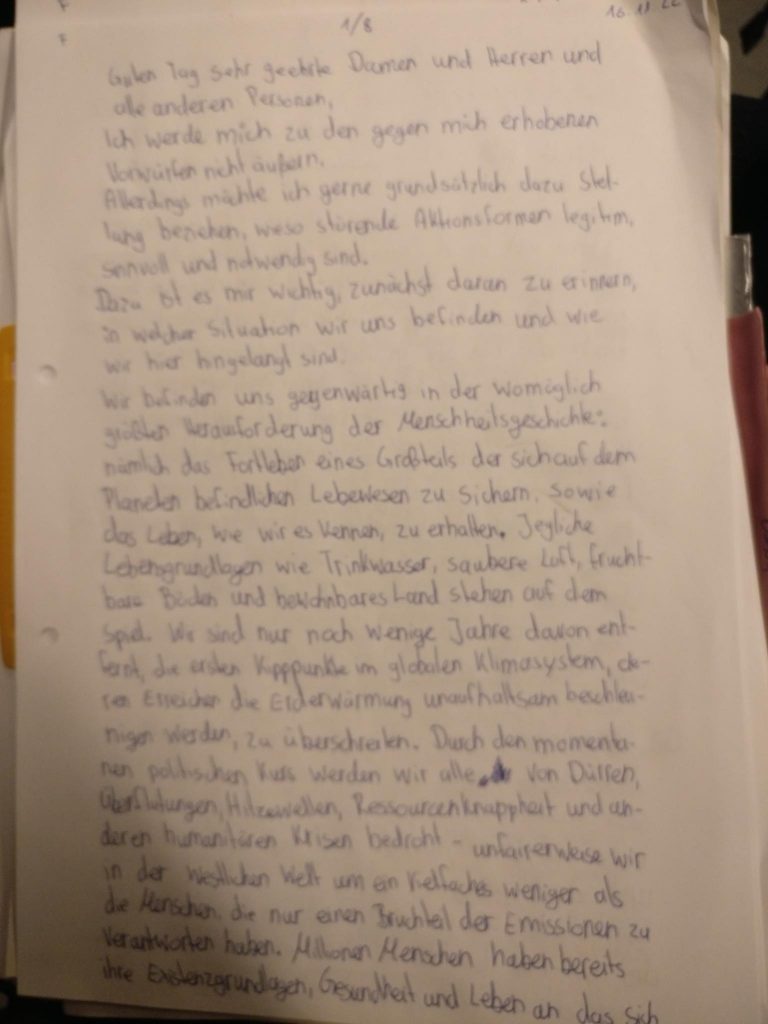 1/8
16.11.22
Guten Tag sehr geehrte Damen und Herren und
alle anderen Personen,
Ich werde mich zu den gegen mich erhobenen
Vorwürfen nicht äußern.
Allerdings möchte ich gerne grundsätzlich dazu Stel-
lung beziehen, wieso störende Aktionsformen legitim,
sinnvoll und notwendig sind.
Dazu ist es mir wichtig, zunächst daran zu erinnern,
in welcher Situation wir uns befinden und wie
wir hier hingelangt sind.
Wir befinden uns gegenwärtig in der womöglich
größten Herausforderung der Menschheitsgeschichte:
nämlich das Fortleben eines Großteils der sich auf dem
Planeten befindlichen Lebewesen zu sichern, sowie
das Leben, wie wir es kennen, zu erhalten. Jegliche
Lebensgrundlagen wie Trinkwasser, saubere Luft, frucht-
bare Böden und bewohnbares Land stehen auf dem
Spiel. Wir sind nur noch wenige Jahre davon ent-
fernt, die ersten Kipppunkte im globalen Klimasystem, de-
ren Erreichen die Erderwärmung unaufhaltsam beschleu-
nigen werden, zu überschreiten. Durch den momenta-
nen politischen Kurs werden wir alle von Dürren,
Überflutungen, Hitzewellen, Ressourcenknappheit und an-
deren humanitären Krisen bedroht - unfairerweise wir
in der westlichen Welt um ein Vielfaches weniger als
die Menschen, die nur einen Bruchteil der Emissionen zu
verantworten haben. Millionen Menschen haben bereits
ihre Existenzgrundlagen, Gesundheit und Leben an das sich